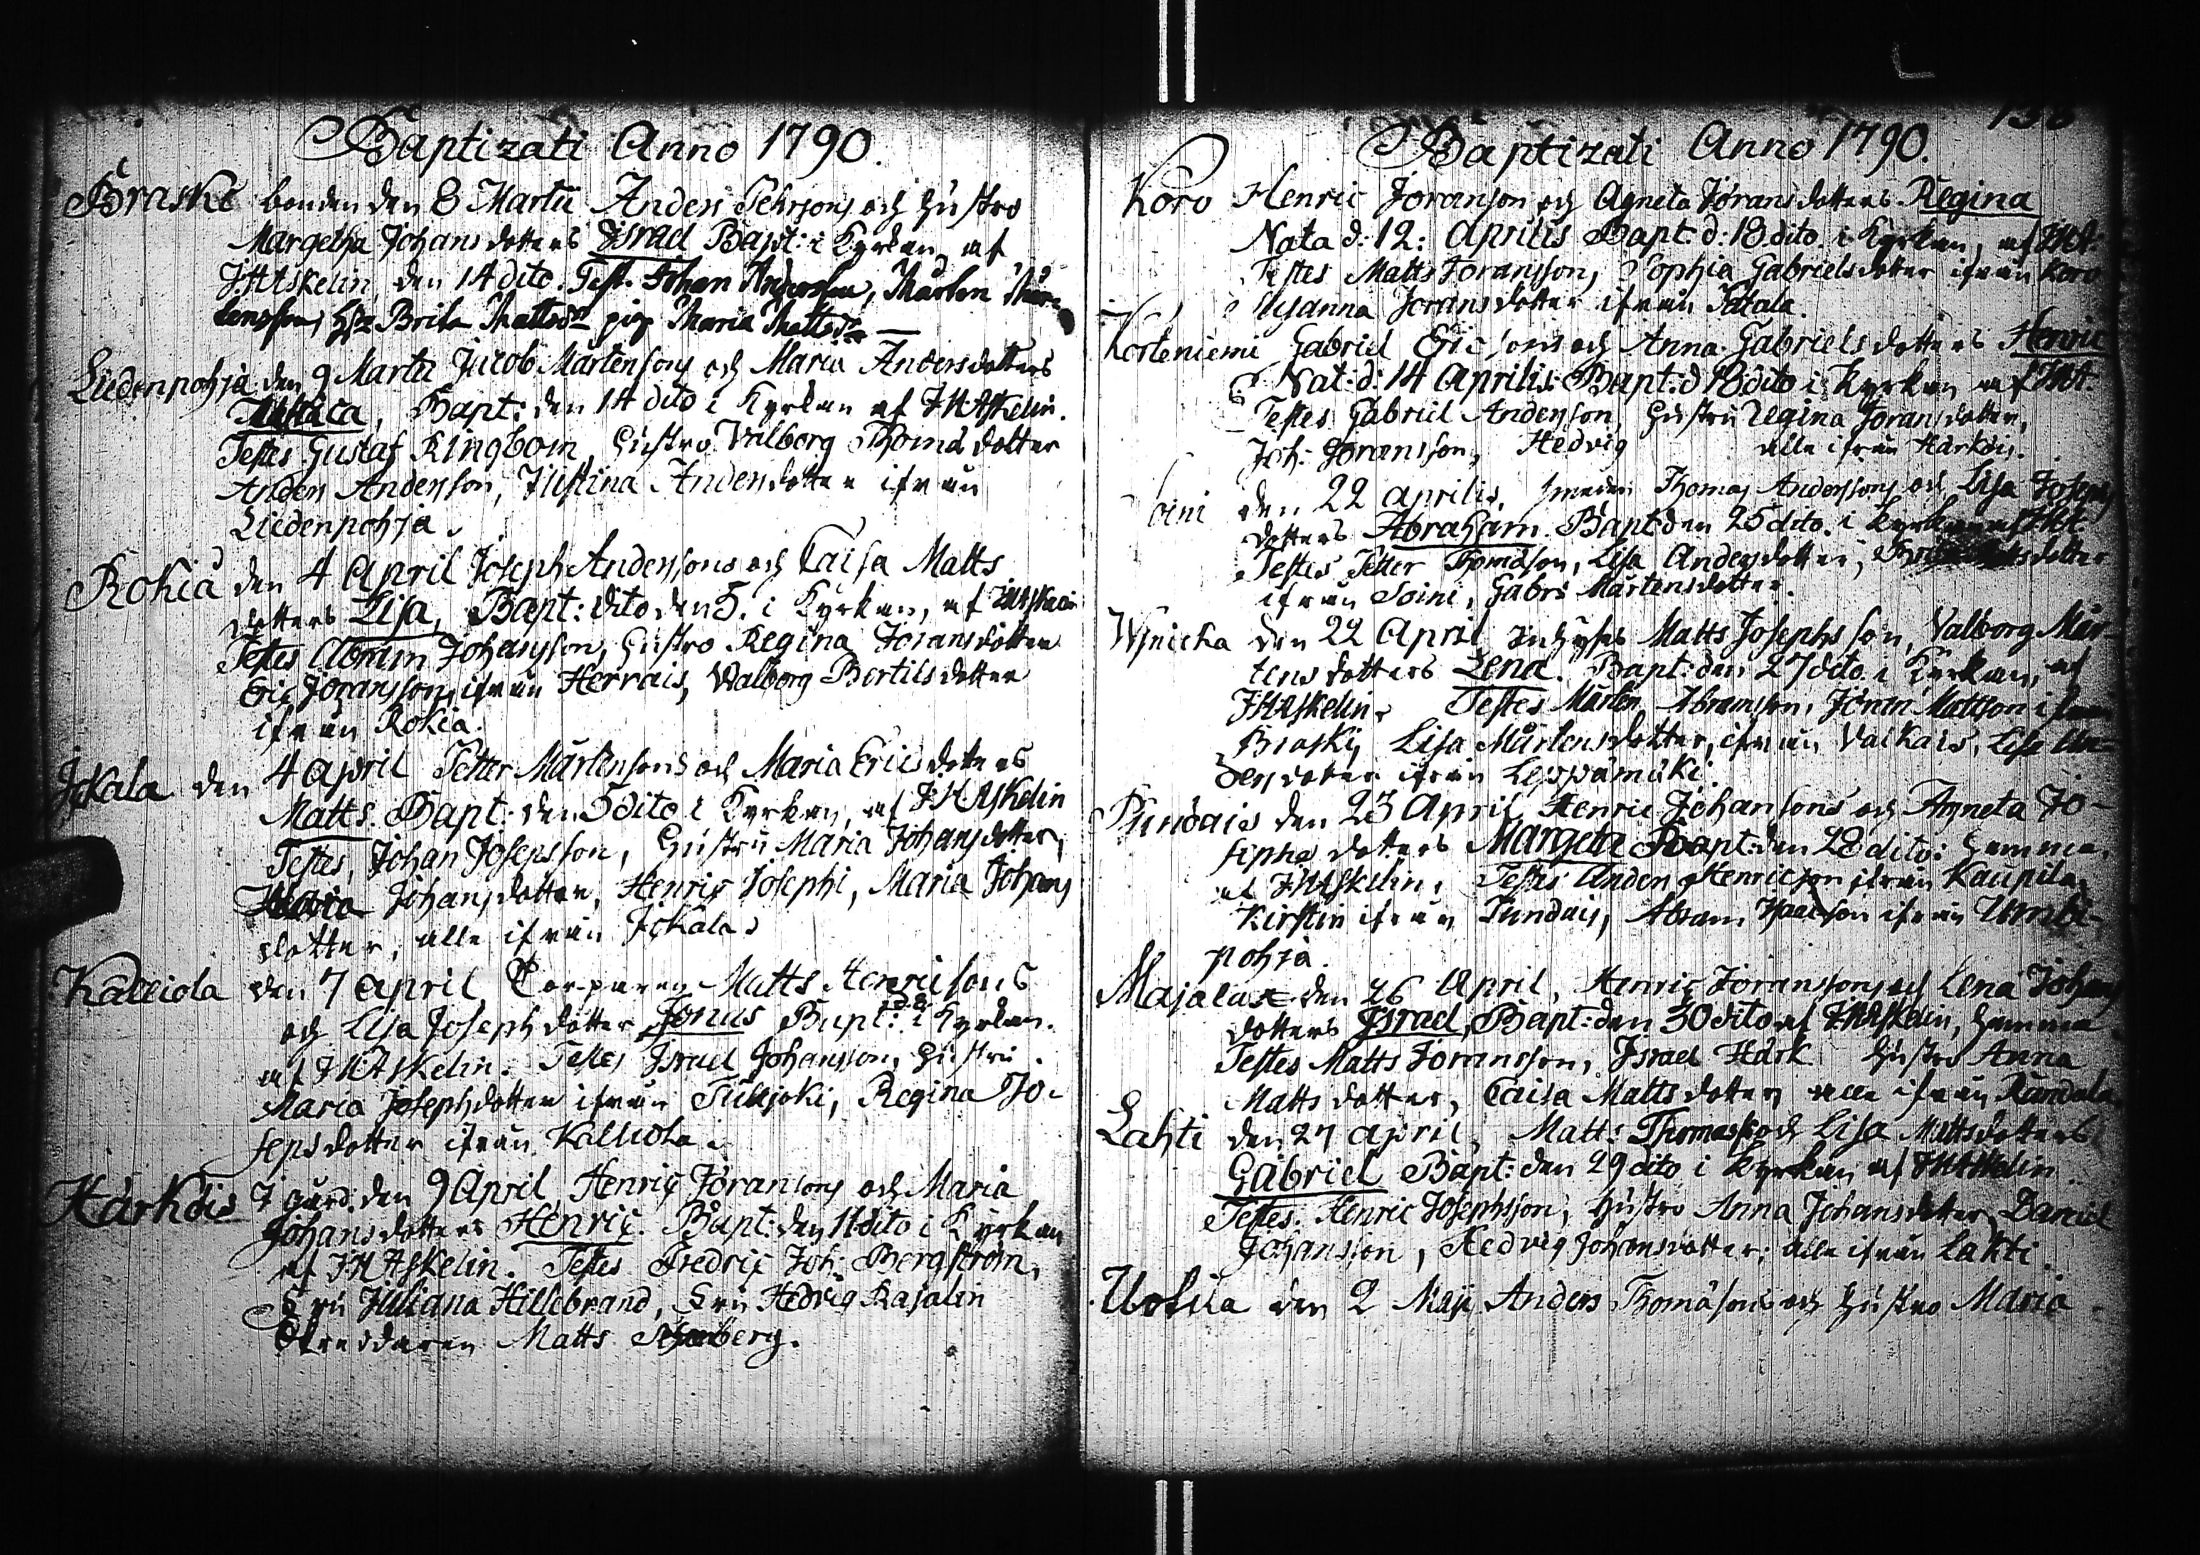 Baptizati Anno 1790.
Braski bonden den 8 Martii Anders Pehrsons och hustro
Margetha Johansdotters Israel Bapt: i Kyrkan, af
JHAskelin, den 14 dito. Test. Johan Andersson, Mårten Mår-
tensson, Hr Brita Mattsdr pig. Maria Mattsdr
Liedenpohja den 9 Martii Jacob Mårtensons och Maria Andersdotters
Bapt: den 14 dito i Kyrkan af JHAskelin.
Testes Gustaf Ringbom, hustro Valborg Thomædotter
Anders Andersson, Justina Andersdotter ifrån
Liedenpohja.
Rokia den 4 April Joseph Anderssons och Caisa Matts
dotters Lisa, Bapt: dito den 5. i Kyrkan, af JHAskelin
Testes Abram Johansson, hustro Regina Joransdotter
Eric Joransson, ifrån Herrais, Valborg Bertilsdotter
ifrån Rokia.
Jckala den 4 april Petter Mårtensons och Maria Ericsdotters
Matts. Bapt: den 5 dito i Kyrkan, af JHAskelin
Testes, Johan Josepsson, hustru Maria Johansdotter,
Maria Johansdotter, Henric Josephi, Maria Johans
dotter, alle ifrån Jckala.
Kalliola den 7 april Torparen Matts Henricsons
och Lisa Josephdotter Jonus Bapt: i Kyrkan.
af JHAskelin. Testes Israel Johansson, hustru
Maria Josephsdotter ifrån Tuhjoki, Regina Jo-
sepsdotter ifrån Kalliola.
Härköis 7 gård. den 9 April Henric Joransons och Maria
Johansdotters Henric. Bapt: den 11 dito i Kyrkan
af JHAskelin. Testes Fredric Joh: Bergström,
Fru Juliana Hillebrand, Fru Hedvig Rajalin
Skreddaren Matts
138
Baptizati Anno 1790.
Koro Henric Joranson och Agneta Joransdotters Regina
Nata d: 12: Aprilis Bapt. d: 18 dito i Kyrkan, af JHA.
Testes Matts Joransson, Sophia Gabrielsdotter ifrån Koro
Susanna Joransdotter ifrån Tatala.
Korteniemi Gabriel Ericsons och Anna Gabrielsdotters Henric
Nat: d: 14 Aprilis Bapt: d 18 dito i Kyrkan af JHA.
Testes Gabriel Andersson, hustru Regina Joransdotter,
Joh: Joransson, Hedvig alle ifrån Härköis.
Soini den 22 aprilis, smeden Thomas Anderssons och Lisa Joseps
dotters Abraham. Bapt: den 25 dito i Kyrkan af JHA
Testes Petter Thomasson, Lisa Andersdotter,
ifrån Soini, Gabrs Mårtensdotter.
den 22 April Inhyses Matts Josephsson, Valborg Mår-
tensdotters Lena. Bapt: den 27 dito i Kyrkan, af
JHAskelin. Testes Mårten Abramsson, Joran Mattson ifrån
Braski, Lisa Mårtensdotter, ifrån Vaikais, Lisa An-
dersdotter ifrån Leppämäki.
Pundais den 23 April, Henric Johansons och Agneta Jo-
sephs dotters Margeta Bapt: den 28 dito: hemma,
af JHAskelin. Testes Anders Henricson ifrån Kaupila,
Kirstin ifrån Pundais, Abram Isaacson ifrån
pohja.
Majalax den 26 April, Henric Joranssons och Lena Johans
dotters Israel, Bapt: den 30 dito af JHAskelin, hemma
Testes Matts Joransson, Israel Hårk hustro Anna
Mattsdotter, Caisa Mattsdotter alle ifrån Randala
Lahti den 27 april, Matts Thomass: och Lisa Mattsdotters
Gabriel Bapt: den 29 dito i Kyrkan af JHAskelin
Testes. Henric Josephsson, hustro Anna Johansdotter, Daniel
Johansson, Hedvig Johansdotter; alle ifrån Lahti.
Uotila den 2 Maji Anders Thomasons och hustro Maria